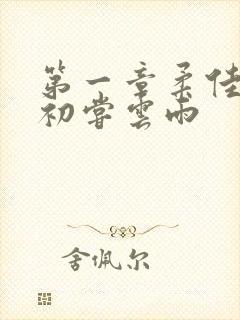 第一章柔佳
初嘗雲雨
舍佩尔